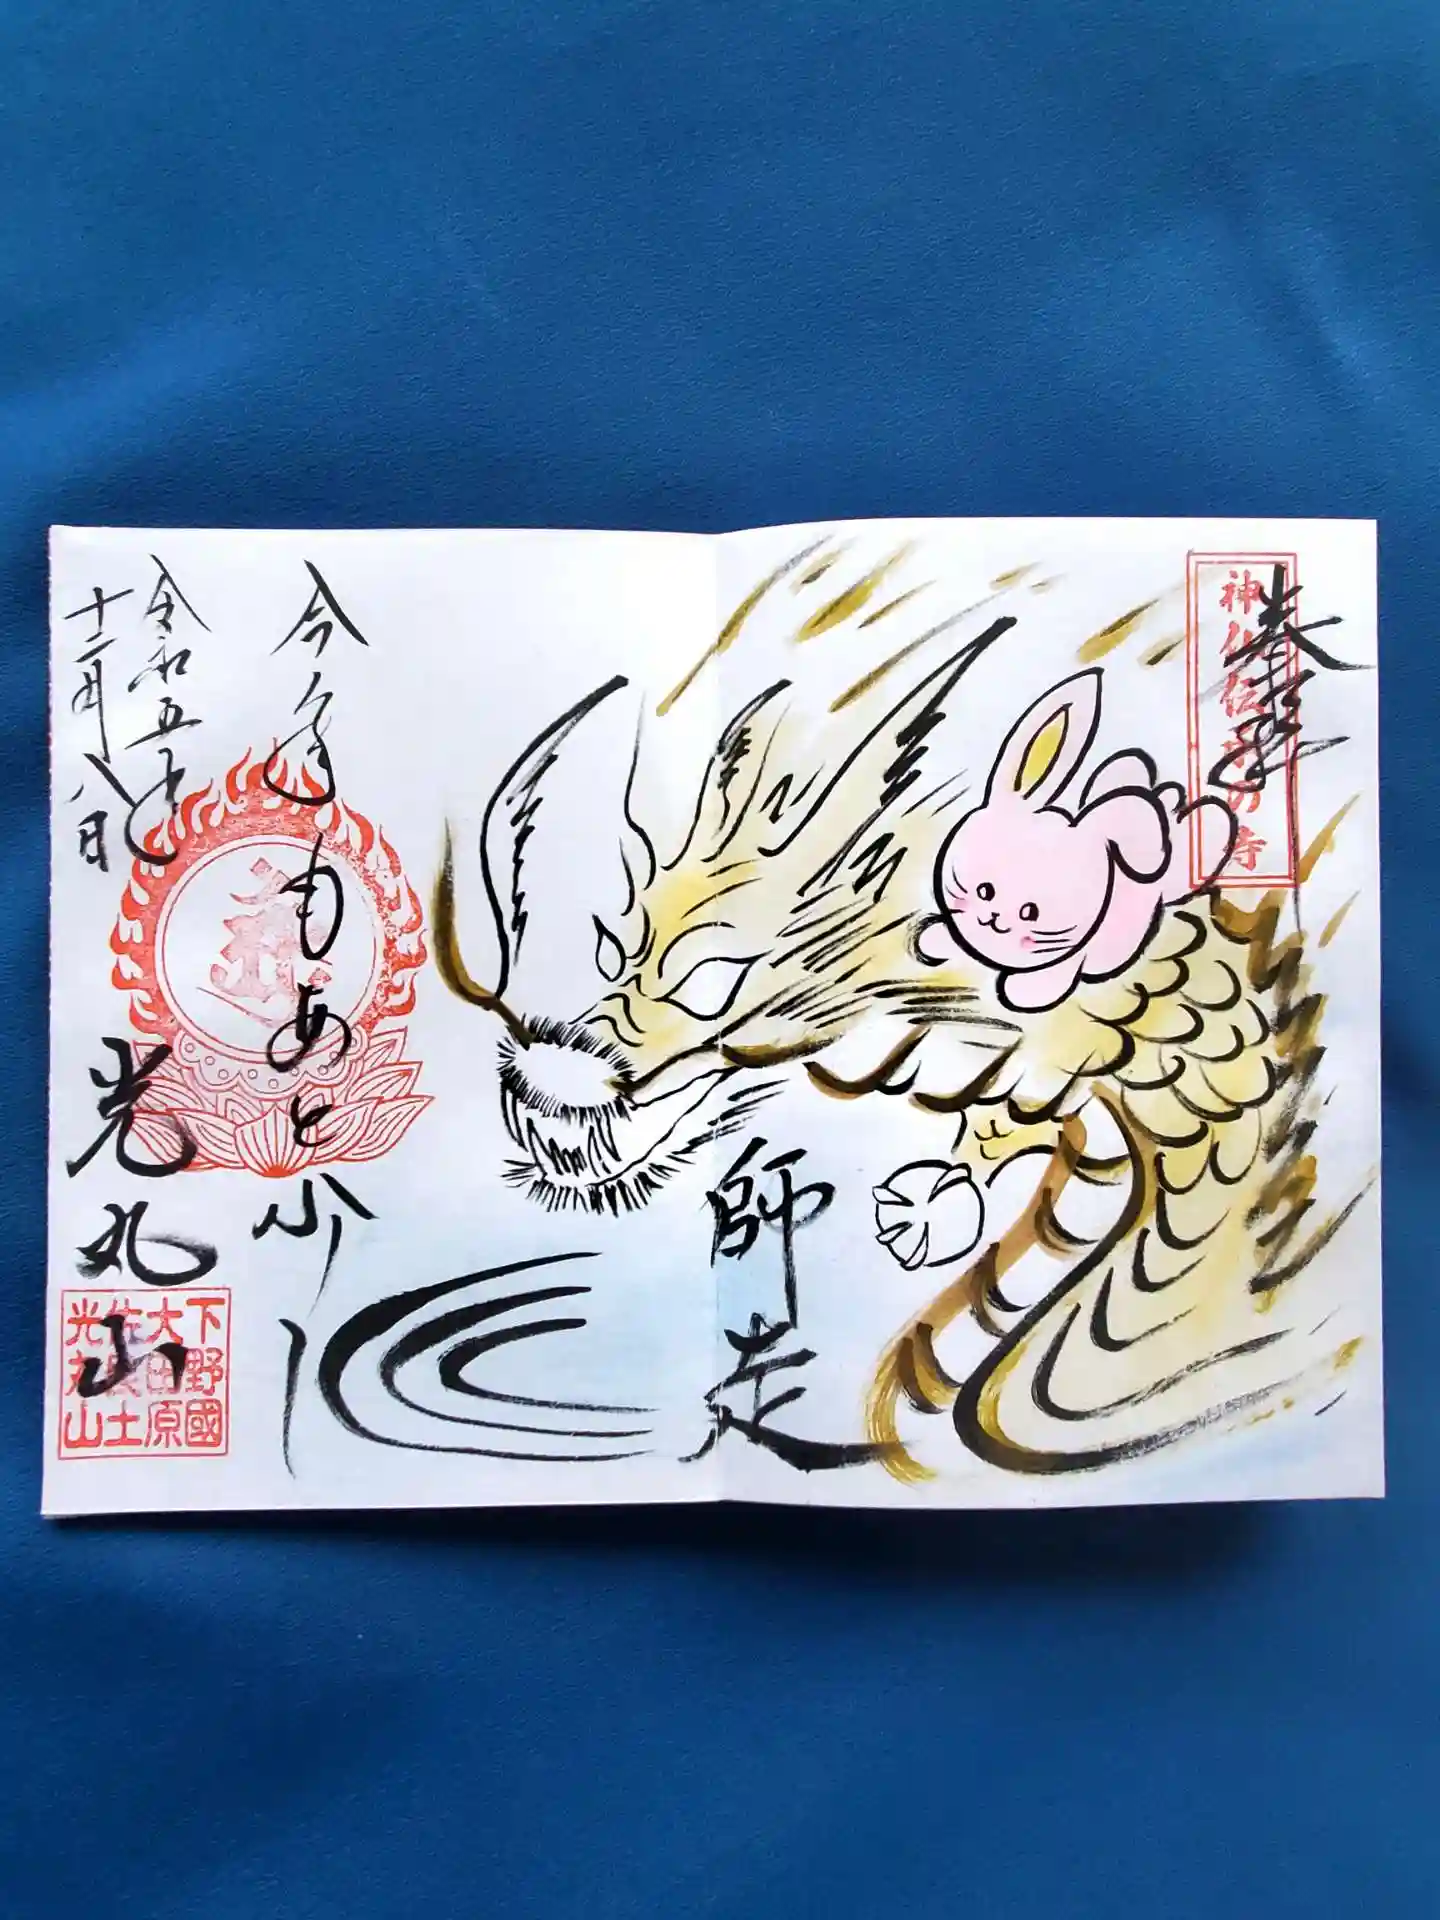 奉拝
神仏伝承の寺
師走
今年もあと少し
令和五年
十二月八日
光丸山
下野國
大田原
佐良土
光丸山